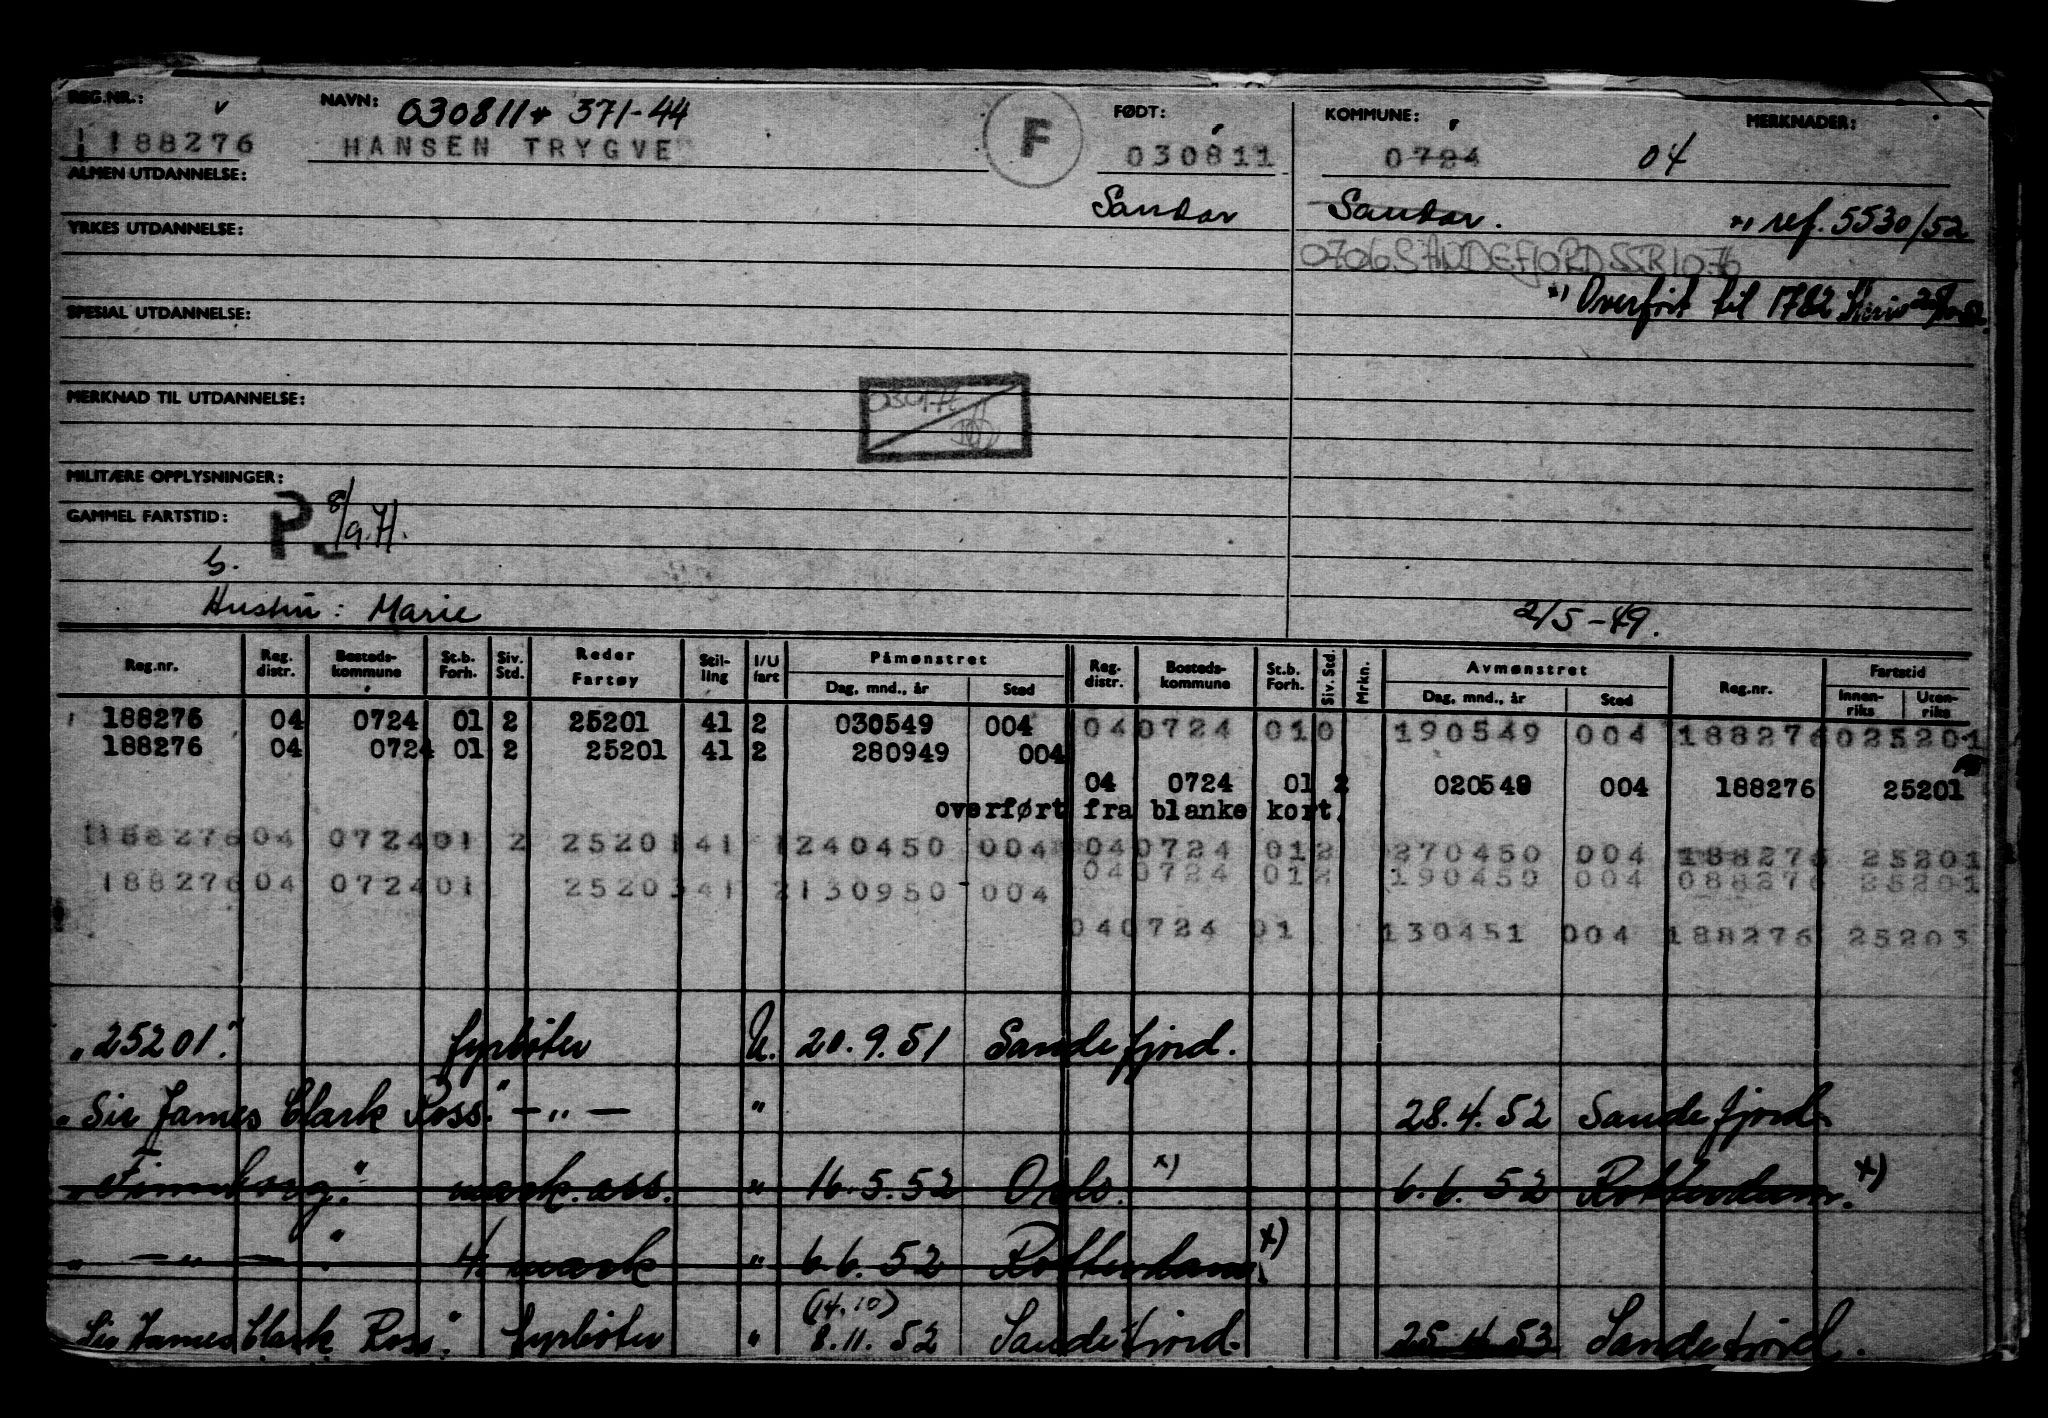 REG.NR.: NAVN: 030811 * 371-44 FØDT: KOMMUNE: MERKNADER:
188276 HANSEN TRYGVE F 030811 0724 04
ALMEN UTDANNELSE: Sandar Sandar. *) ref. 5530/52
YRKES UTDANNELSE: 0706 SANDEFJORD SSB 1076
*) Overført til 1782
SPESIAL UTDANNELSE:
MERKNAD TIL UTDANNELSE:
MILITÆRE OPPLYSNINGER:
GAMMEL FARTSTID: P. 8/9.71.
S.
Hustru: Marie 2/5-49.
Reg.nr. Reg. distr. Bosteds-kommune St.b. Forh. Siv. Std. Reder Fartøy Stil-ling I/U fart Påmønstret Dag, mnd., år Sted Reg. distr. Bosteds-kommune St.b. Forh. Siv. Std. Mrkn. Avmønstret Dag, mnd., år Sted Reg.nr. Fartstid Innen-riks Uten-riks
188276 04 0724 01 2 25201 41 2 030549 004 04 0724 01 0 190549 004 188276 025201
188276 04 0724 01 2 25201 41 2 280949 004
04 0724 01 2 020549 004 188276 25201
overført fra blanke kort.
188276 04 0724 01 2 25201 41 1 240450 004 04 0724 01 2 270450 004 188276 25201
04 0724 01 2 190450 004 088276 25201
188276 04 0724 01 25203 41 2 130950 - 004
04 0724 01 130451 004 188276 25203
"25201" fyrbøter U. 20.9.51 Sandefjord.
"Sir James Clark Ross." - " - " 28.4.52 Sandefjord
"Finnborg." mask.ass. " 16.5.52 Oslo. x) 6.6.52 Rotterdam. x)
" - " - " 4. mask " 6.6.52 Rotterdam x)
(14.10)
"Sir James Clark Ross." fyrbøter " 8.11.52 Sandefjord. 25.4.53 Sandefjord.